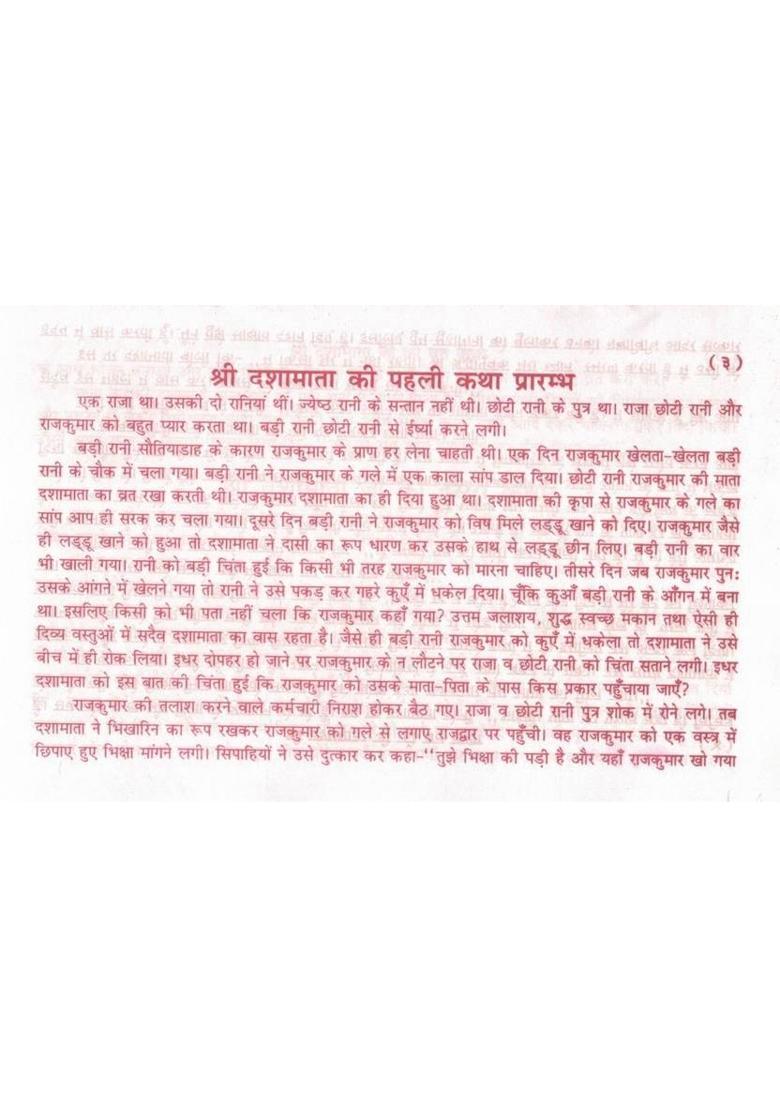 (३)
श्री दशामाता की पहली कथा प्रारम्भ
एक राजा था। उसकी दो रानियां थीं। ज्येष्ठ रानी के सन्तान नहीं थी। छोटी रानी के पुत्र था। राजा छोटी रानी और
राजकुमार को बहुत प्यार करता था। बड़ी रानी छोटी रानी से ईर्ष्या करने लगी।
बड़ी रानी सौतियाडाह के कारण राजकुमार के प्राण हर लेना चाहती थी। एक दिन राजकुमार खेलता-खेलता बड़ी
रानी के चौक में चला गया। बड़ी रानी ने राजकुमार के गले में एक काला सांप डाल दिया। छोटी रानी राजकुमार की माता
दशामाता का व्रत रखा करती थी। राजकुमार दशामाता का ही दिया हुआ था। दशामाता की कृपा से राजकुमार के गले का
सांप आप ही सरक कर चला गया। दूसरे दिन बड़ी रानी ने राजकुमार को विष मिले लड्डू खाने को दिए। राजकुमार जैसे
ही लड्डू खाने को हुआ तो दशामाता ने दासी का रूप धारण कर उसके हाथ से लड्डू छीन लिए। बड़ी रानी का वार
भी खाली गया। रानी को बड़ी चिंता हुई कि किसी भी तरह राजकुमार को मारना चाहिए। तीसरे दिन जब राजकुमार पुन:
उसके आंगने में खेलने गया तो रानी ने उसे पकड़ कर गहरे कुएँ में धकेल दिया। चूँकि कुआँ बड़ी रानी के आँगन में बना
था। इसलिए किसी को भी पता नहीं चला कि राजकुमार कहाँ गया? उत्तम जलाशय, शुद्ध स्वच्छ मकान तथा ऐसी ही
दिव्य वस्तुओं में सदैव दशामाता का वास रहता है। जैसे ही बड़ी रानी राजकुमार को कुएँ में धकेला तो दशामाता ने उसे
बीच में ही रोक लिया। इधर दोपहर हो जाने पर राजकुमार के न लौटने पर राजा व छोटी रानी को चिंता सताने लगी। इधर
दशामाता को इस बात की चिंता हुई कि राजकुमार को उसके माता-पिता के पास किस प्रकार पहुँचाया जाएँ?
राजकुमार की तलाश करने वाले कर्मचारी निराश होकर बैठ गए। राजा व छोटी रानी पुत्र शोक में रोने लगे। तब
दशामाता ने भिखारिन का रूप रखकर राजकुमार को गले से लगाए राजद्वार पर पहुँची। वह राजकुमार को एक वस्त्र में
छिपाए हुए भिक्षा मांगने लगी। सिपाहियों ने उसे दुत्कार कर कहा-"तुझे भिक्षा की पड़ी है और यहाँ राजकुमार खो गया